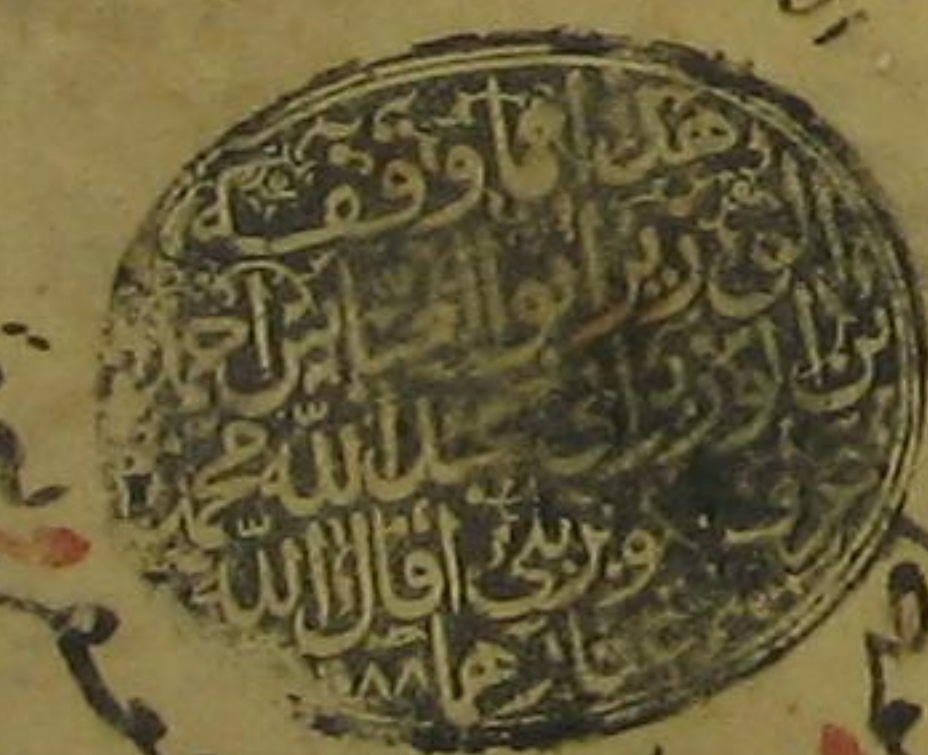 هذا ما وقفه
الوزير ابو العباس احمد
بن الوزير ابى عبد الله محمد
عرف بكوبريلى اقال الله
عثارهما ٨٨